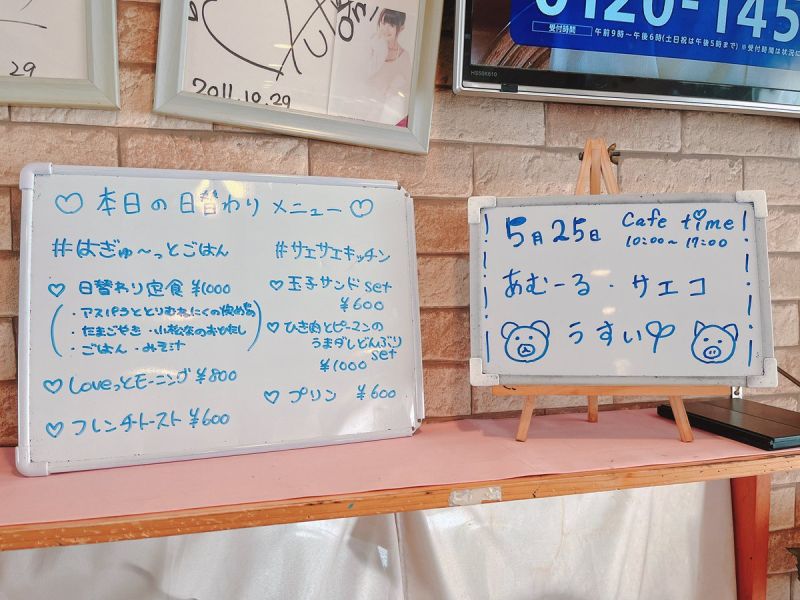 2011.10.29
29
0120-145
受付時間 午前9時~午後6時(土日祝は午後5時まで) ※受付時間は状況に
HS50K610
♡ 本日の日替わり メニュー ♡
#はぎゅ~っとごはん
♡ 日替わり定食 ¥1000
・アスパラととりむねにくの炒め
・たまごやき ・小松菜のおひたし
・ごはん ・みそ汁
♡ Loveっとモーニング ¥800
♡ フレンチトースト ¥600
#サエサエキッチン
♡ 玉子サンド set
¥600
♡ ひき肉とピーマンの
うまダレどんぶり
set
¥1000
♡ プリン ¥600
5月25日 Cafe time!
10:00~17:00
あむーる・サエコ
うすい